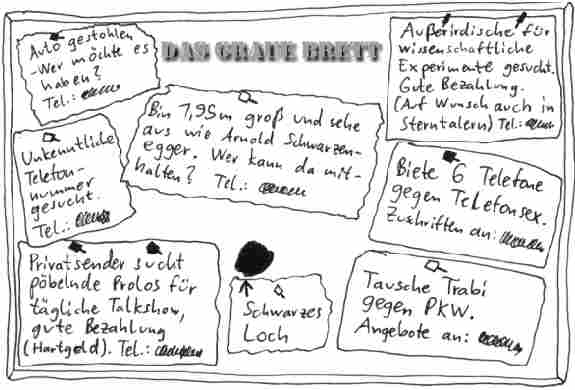 DAS GRAUE BRETT
Auto gestohlen
-Wer möchte es
haben?
Tel.:
Bin 1,95m groß und sehe
aus wie Arnold Schwarzen-
egger. Wer kann da mit-
halten? Tel.:
Außerirdische für
wissenschaftliche
Experimente gesucht.
Gute Bezahlung.
(Auf Wunsch auch in
Sterntalern) Tel.:
Unkenntliche
Telefon-
nummer
gesucht.
Tel.:
Biete 6 Telefone
gegen Telefonsex.
Zuschriften an:
Privatsender sucht
pöbelnde Prolos für
tägliche Talkshow,
gute Bezahlung
(Hartgeld). Tel.:
Schwarzes
Loch
Tausche Trabi
gegen PKW.
Angebote an: